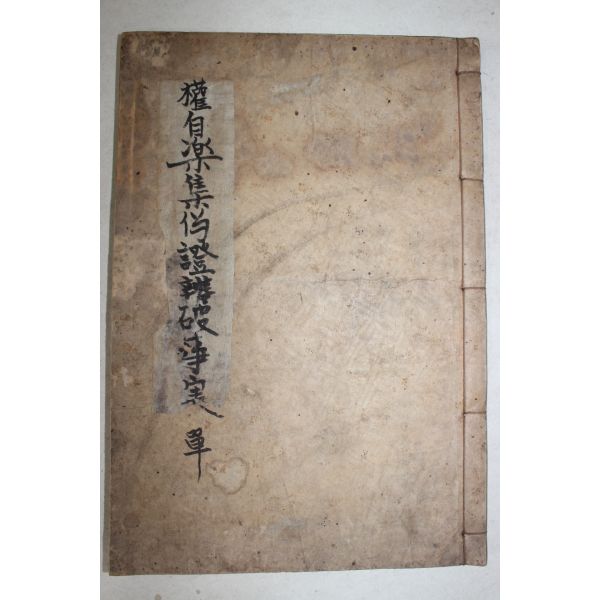 權自楽集僞證辨破事実 單